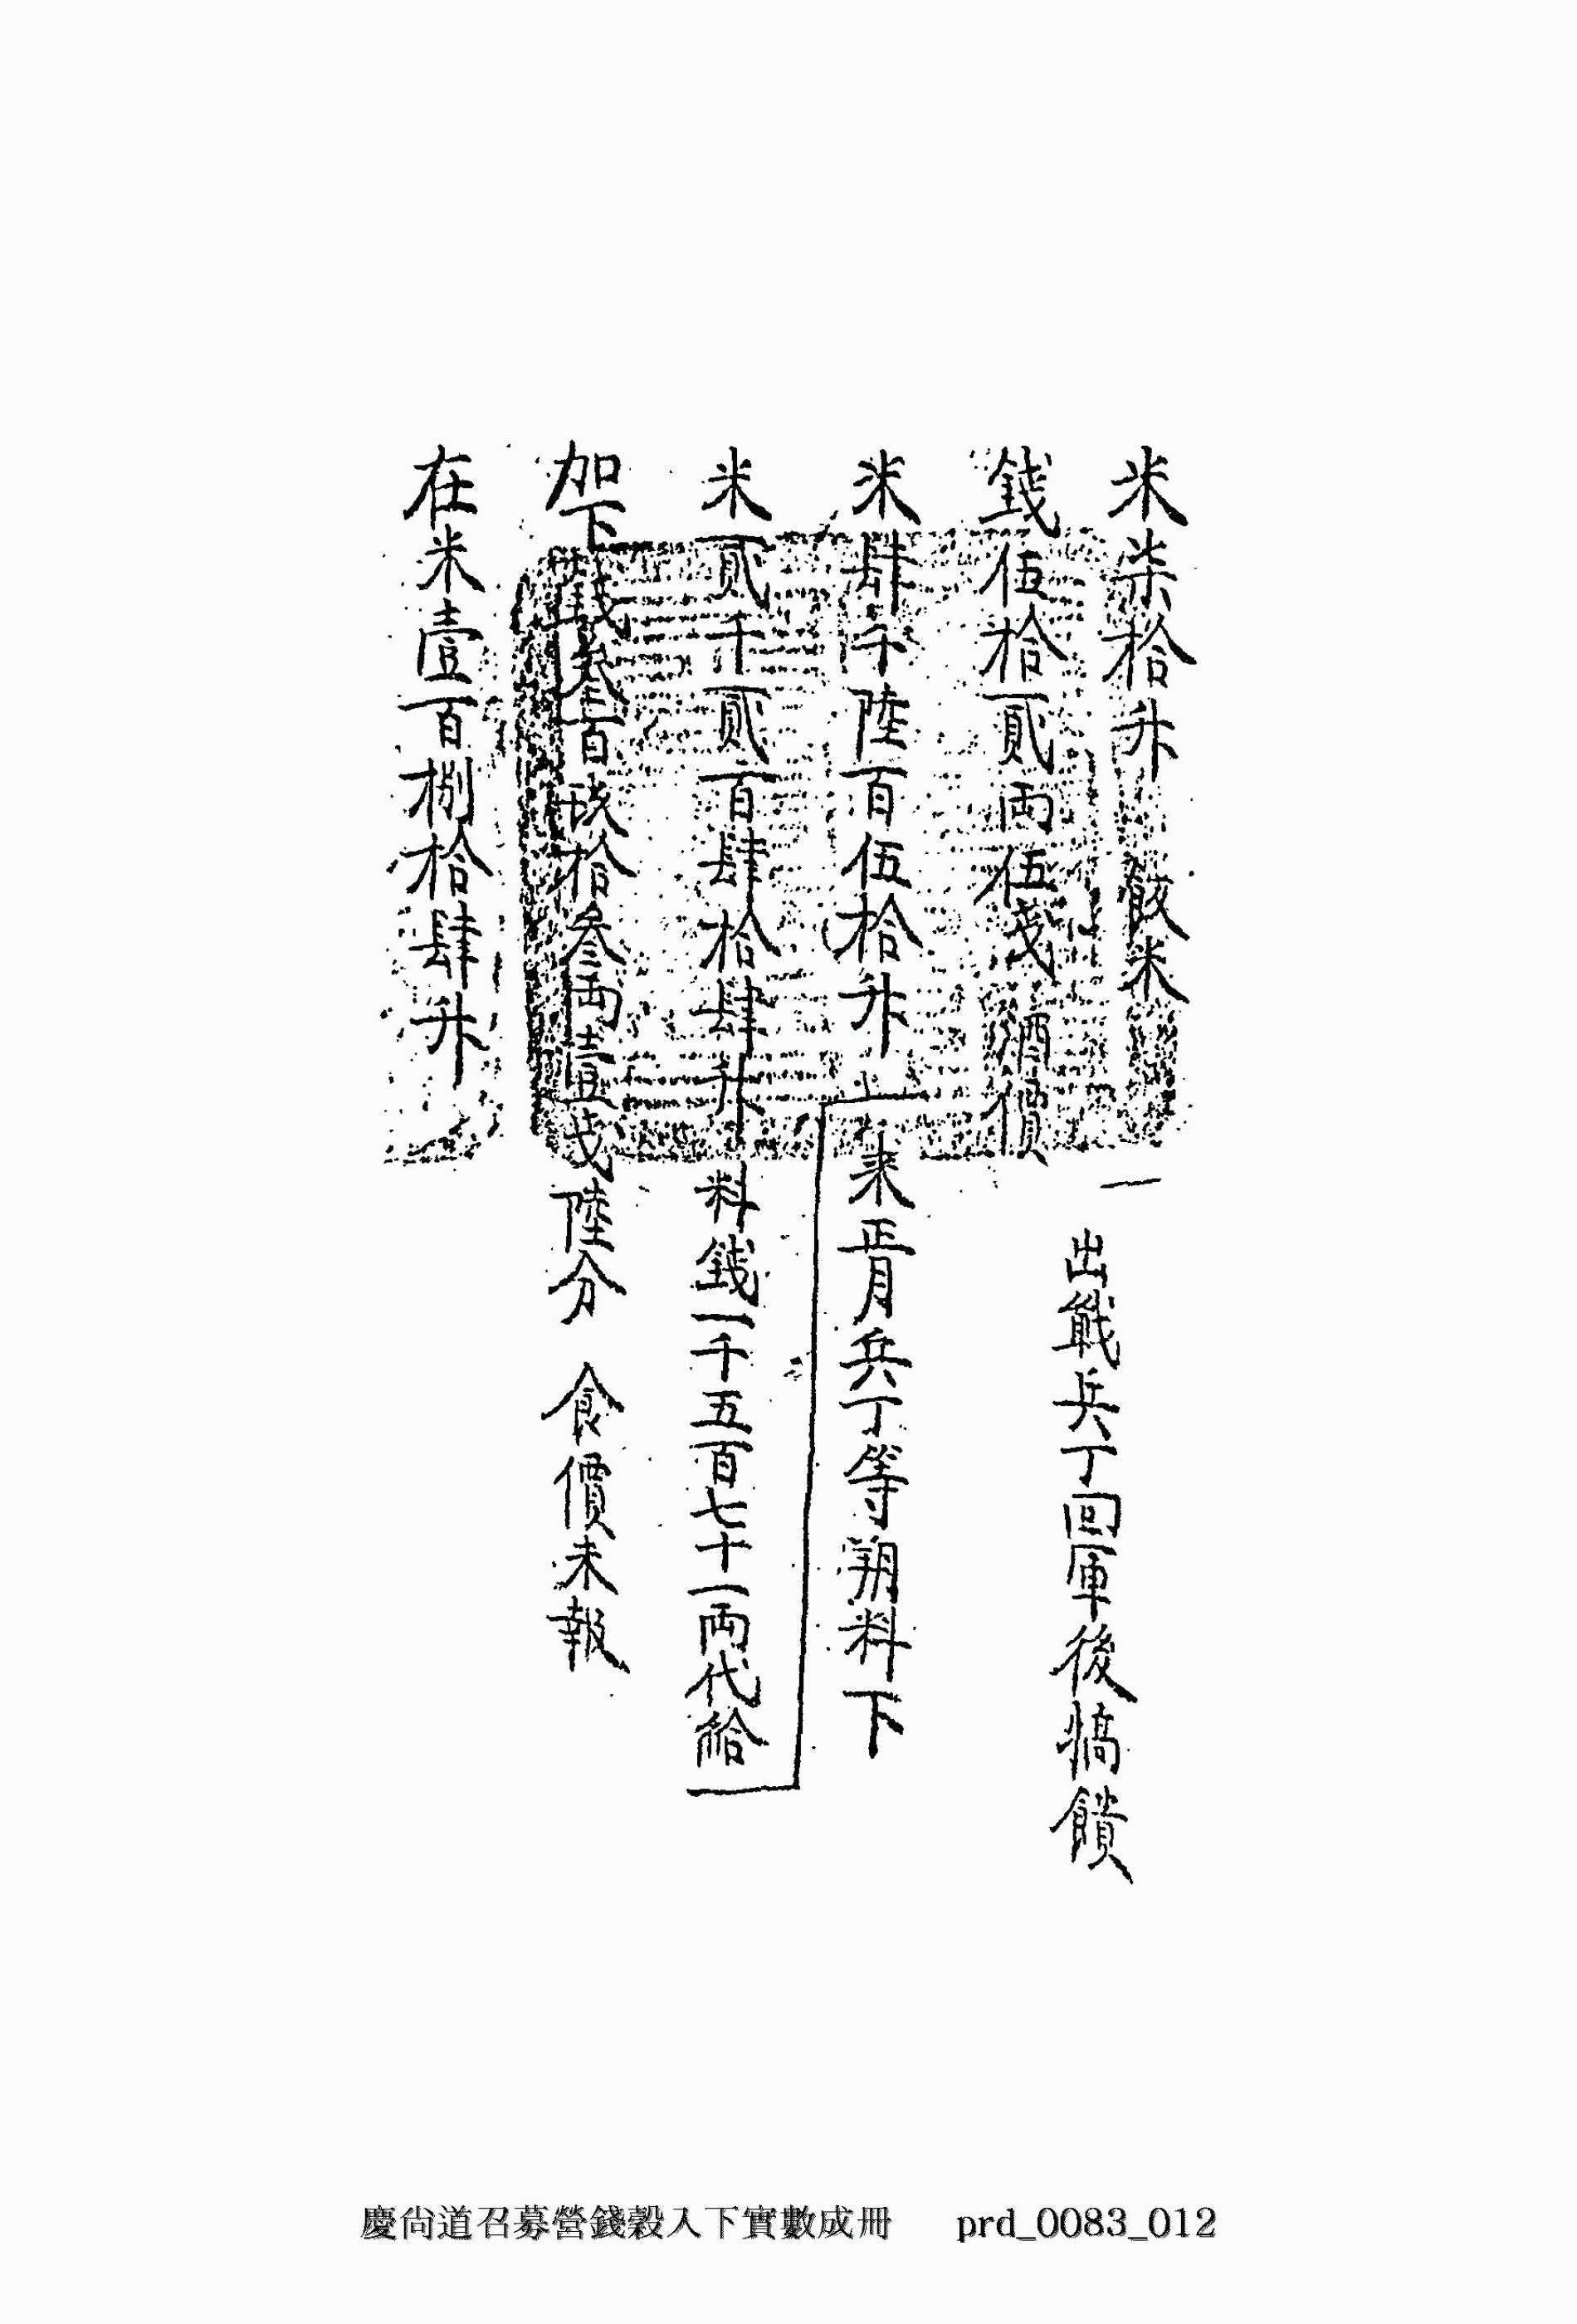 米柒拾升 米
錢伍拾貳両伍戔 酒價
出戰兵丁回軍後犒饋
米肆千陸百伍拾升 来正月兵丁等朔料下
米貳千貳百肆拾肆升 料錢一千五百七十一両代給
加下錢叄百玖拾叄両壹戔陸分 食價未報
在米壹百捌拾肆升
慶尙道召募營錢穀入下實數成冊 prd_0083_012